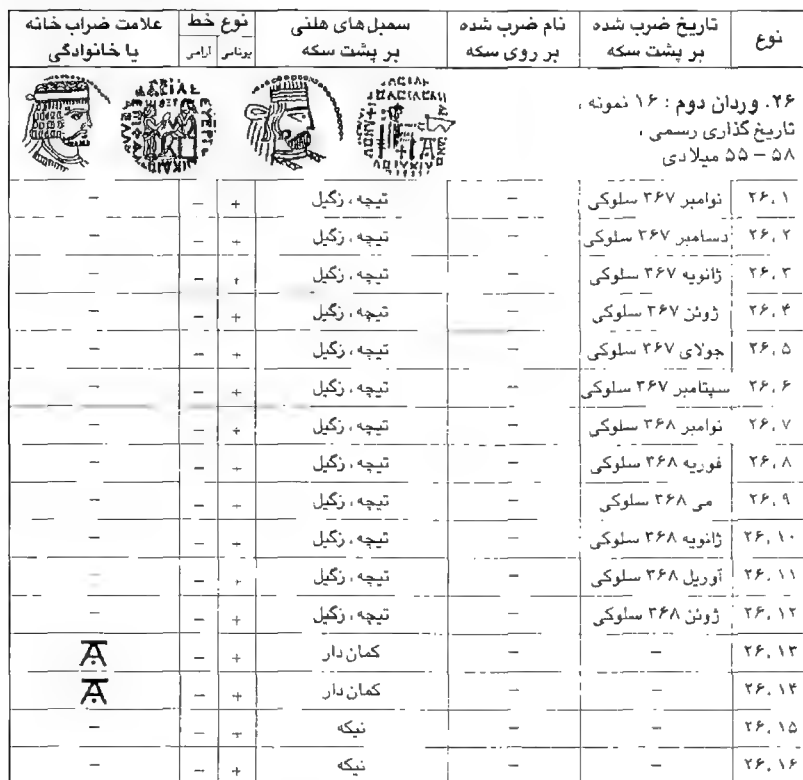 نوع | تاریخ ضرب شده بر پشت سکه | نام ضرب شده بر روی سکه | سمبل های هلنی بر پشت سکه | نوع خط یونانی | نوع خط آرامی | علامت ضراب خانه یا خانوادگی
۲۶. وردان دوم : ۱۶ نمونه ،
تاریخ گذاری رسمی ،
۵۸ – ۵۵ میلادی
۲۶،۱ | نوامبر ۳۶۷ سلوکی | – | تیچه ، زگیل | + | – | –
۲۶،۲ | دسامبر ۳۶۷ سلوکی | – | تیچه ، زگیل | + | – | –
۲۶،۳ | ژانویه ۳۶۷ سلوکی | – | تیچه ، زگیل | + | – | –
۲۶،۴ | ژوئن ۳۶۷ سلوکی | – | تیچه ، زگیل | + | – | –
۲۶،۵ | جولای ۳۶۷ سلوکی | – | تیچه ، زگیل | + | – | –
۲۶،۶ | سپتامبر ۳۶۷ سلوکی | – | تیچه ، زگیل | + | – | –
۲۶،۷ | نوامبر ۳۶۸ سلوکی | – | تیچه ، زگیل | + | – | –
۲۶،۸ | فوریه ۳۶۸ سلوکی | – | تیچه ، زگیل | + | – | –
۲۶،۹ | می ۳۶۸ سلوکی | – | تیچه ، زگیل | + | – | –
۲۶،۱۰ | ژانویه ۳۶۸ سلوکی | – | تیچه ، زگیل | + | – | –
۲۶،۱۱ | آوریل ۳۶۸ سلوکی | – | تیچه ، زگیل | + | – | –
۲۶،۱۲ | ژوئن ۳۶۸ سلوکی | – | تیچه ، زگیل | + | – | –
۲۶،۱۳ | – | – | کمان دار | + | – |
۲۶،۱۴ | – | – | کمان دار | + | – |
۲۶،۱۵ | – | – | نیکه | + | – | –
۲۶،۱۶ | – | – | نیکه | + | – | –